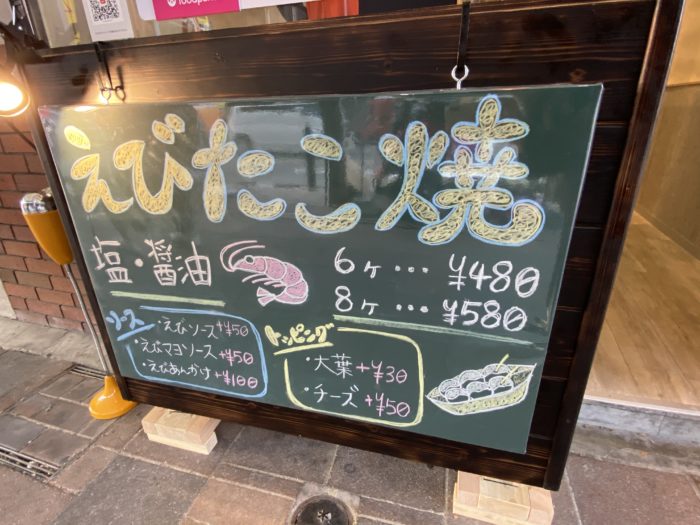 foodpanda
えびたこ焼
塩・醤油
6ヶ … ¥480
8ヶ … ¥580
ソース
・えびソース+¥50
・えびマヨソース+¥50
・えびあんかけ+¥100
トッピング
・大葉+¥30
・チーズ+¥50